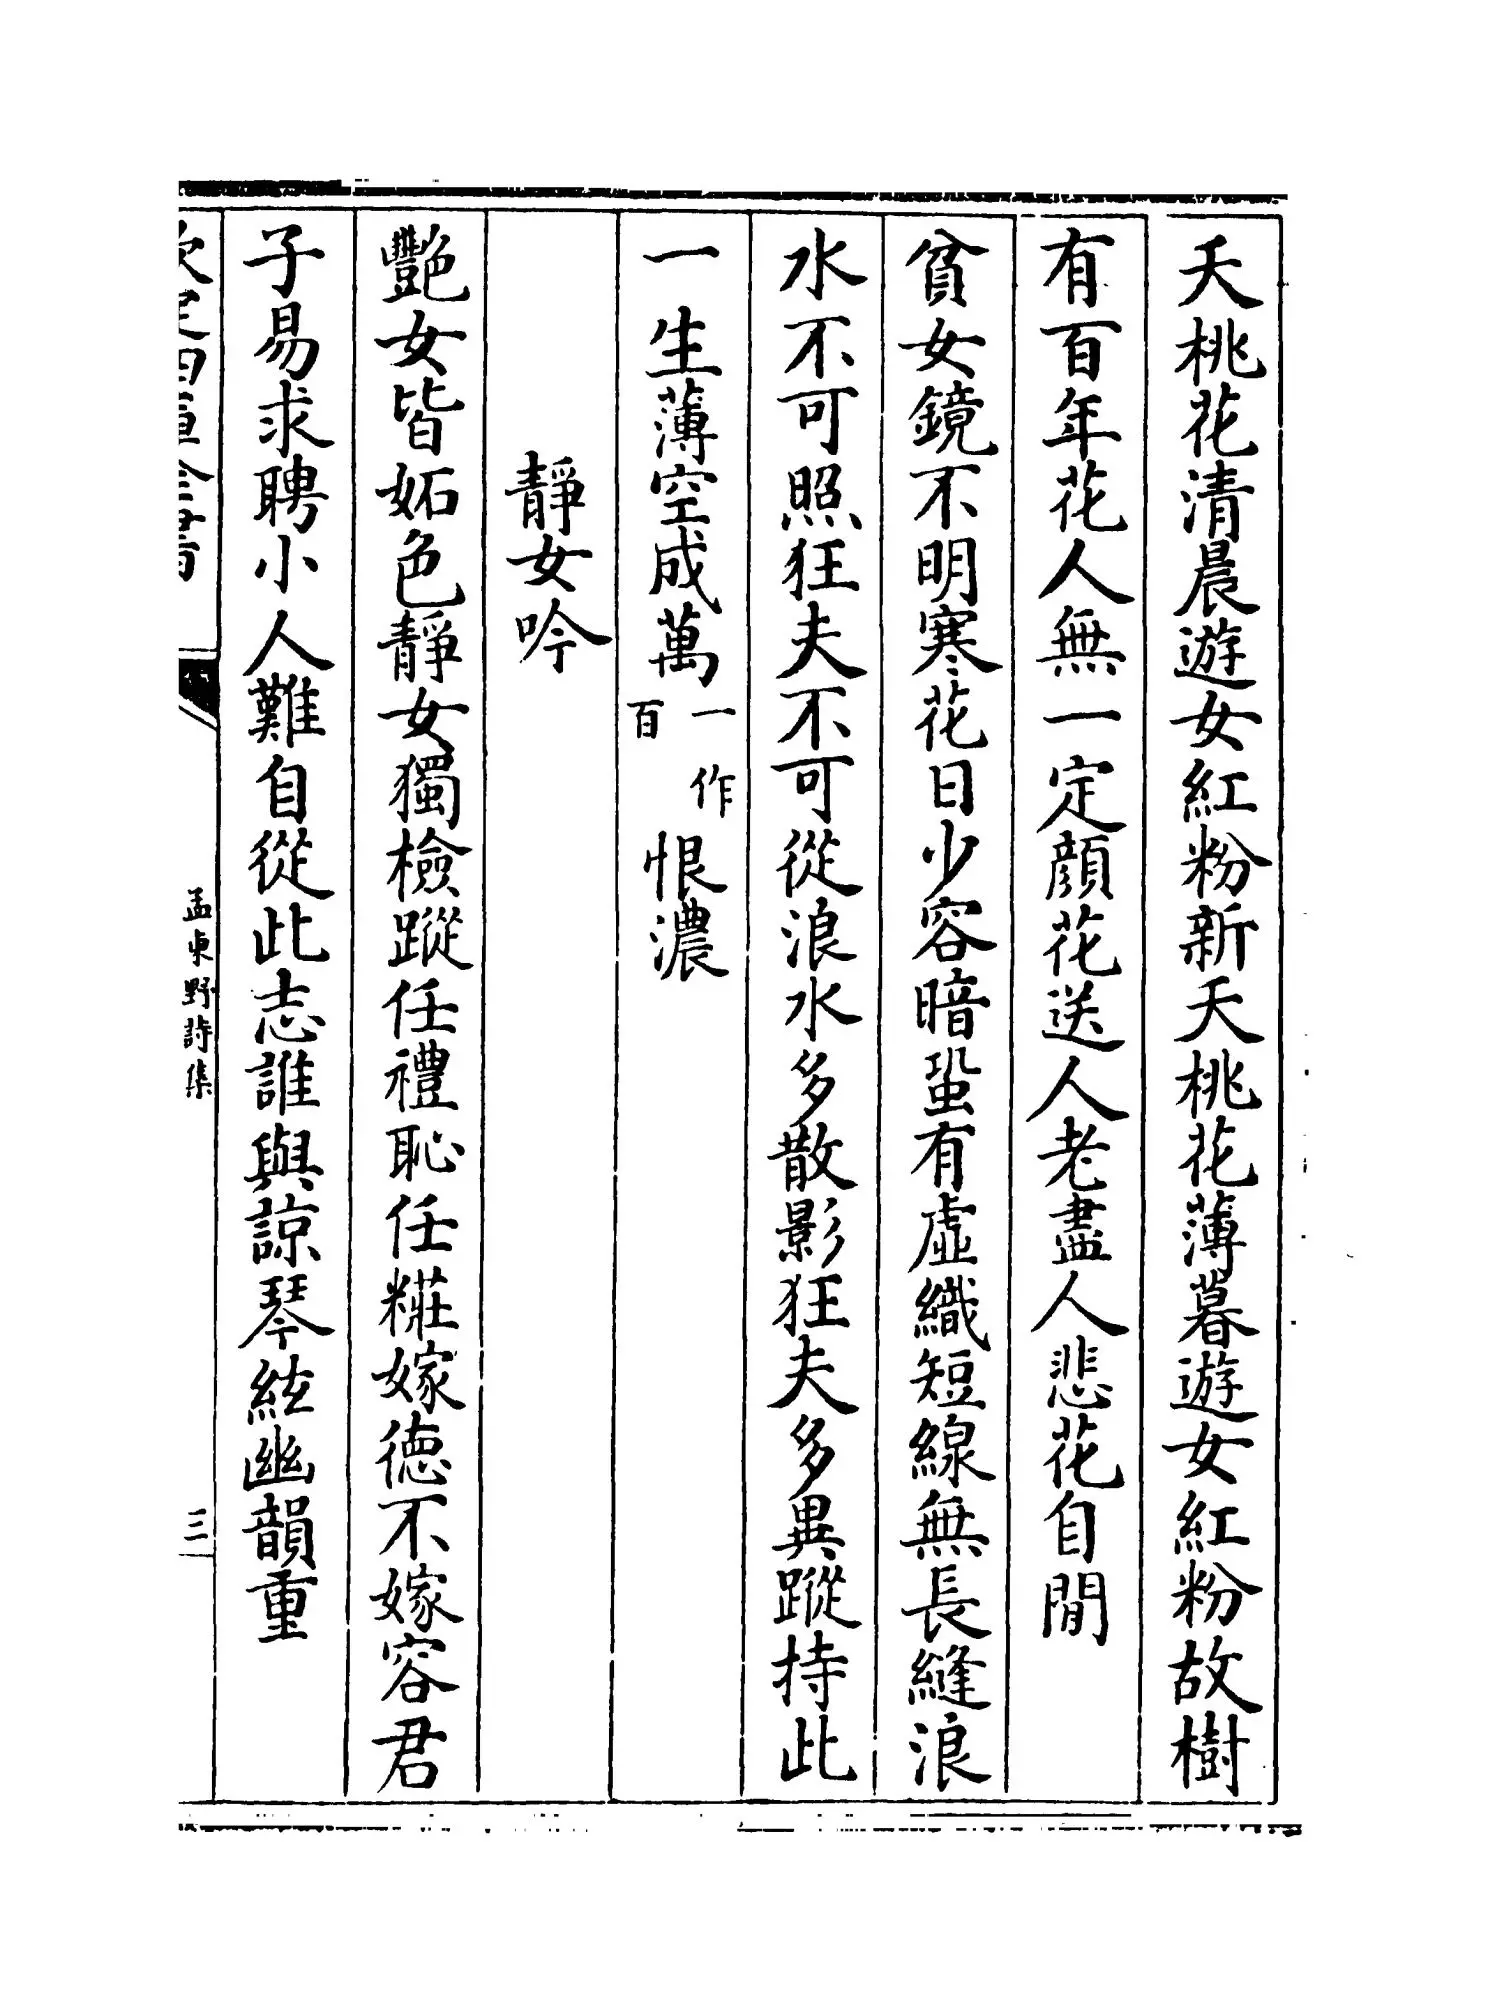 夭桃花清晨遊女紅粉新夭桃花薄暮遊女紅粉故樹
有百年花人無一定顔花送人老盡人悲花自閒
貧女鏡不明寒花日少容暗蛩有虛織短線無長縫浪
水不可照狂夫不可從浪水多散影狂夫多異蹤持此
一生薄空成萬一作百恨濃
靜女吟
艷女皆妬色靜女獨檢蹤任禮恥任粧嫁德不嫁容君
子易求聘小人難自從此志誰與諒琴絃幽韻重
欽定四庫全書
孟東野詩集
三